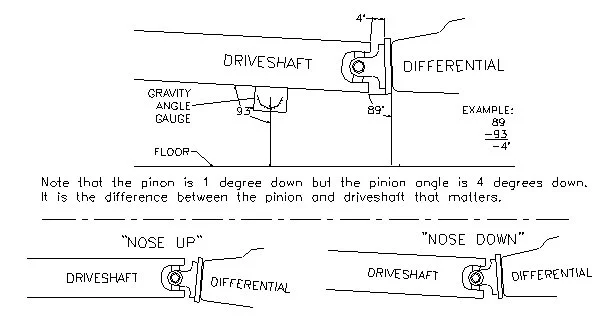 4°
DRIVESHAFT
DIFFERENTIAL
GRAVITY
ANGLE
GAUGE
93°
89°
EXAMPLE:
89
-93
-4°
FLOOR
Note that the pinon is 1 degree down but the pinion angle is 4 degrees down.
It is the difference between the pinion and driveshaft that matters.
"NOSE UP"
"NOSE DOWN"
DRIVESHAFT
DIFFERENTIAL
DRIVESHAFT
DIFFERENTIAL